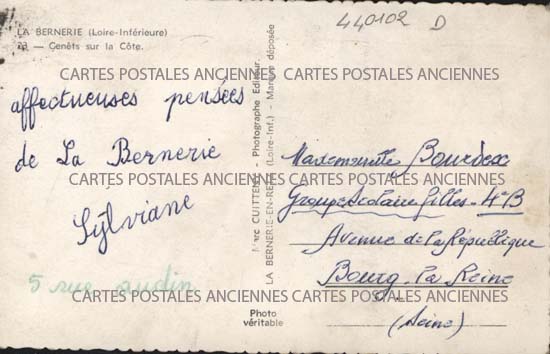 LA BERNERIE (Loire-Inférieure)
23 — Genêts sur la Côte.
440102 D
CARTES POSTALES ANCIENNES CARTES POSTALES ANCIENNES
affectueuses pensées
de La Bernerie
Sylviane
5 rue audin
Marc CUITTENE - Photographe Editeur.
LA BERNERIE-EN-RETZ (Loire-Inf.) - Marque déposée
Photo
véritable
Mademoiselle
CARTES POSTALES ANCIENNES CARTES POSTALES ANCIENNES
Groupe Scolaire filles - 4e B
Avenue de la République
Bourg-la Reine
CARTES POSTALES ANCIENNES CARTES POSTALES ANCIENNES
(Seine)